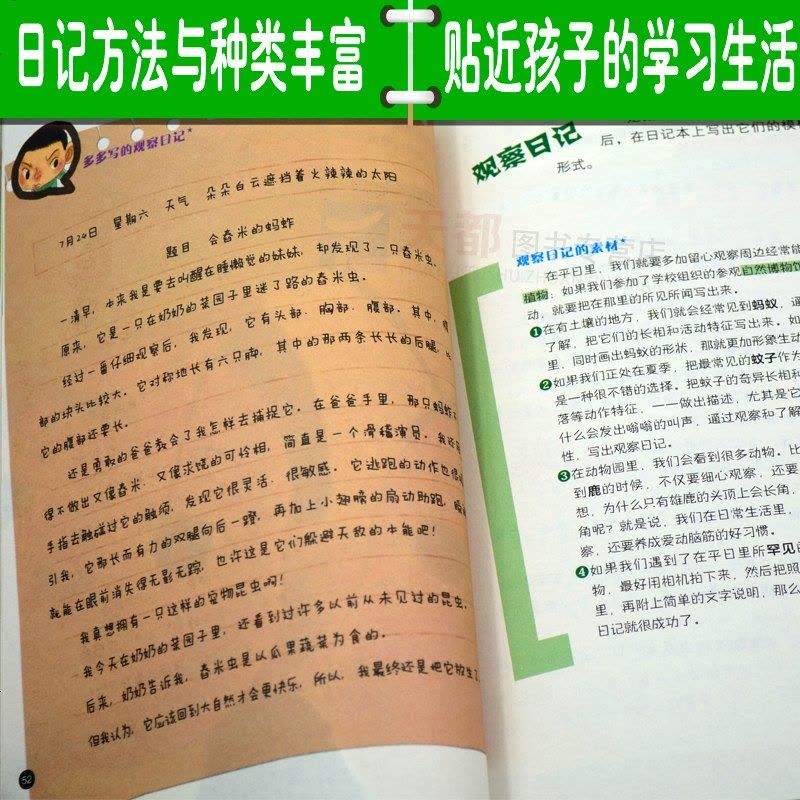 日记方法与种类丰富
贴近孩子的学习生活
多多写的观察日记*
7月24日 星期六 天气 朵朵白云遮挡着火辣辣的太阳
题目 会舂米的蚂蚱
一清早，本来我是要去叫醒在睡懒觉的妹妹，却发现了一只舂米虫。
原来，它是一只在奶奶的菜园子里迷了路的舂米虫。
经过一番仔细观察后，我发现，它有头部、胸部、腹部。其中，腹
部的块头比较大。它对称地长有六只脚，其中的那两条长长的后腿，比
它的腹部还要长。
还是勇敢的爸爸教会了我怎样去捕捉它。在爸爸手里，那只蚂蚱
得不做出又像舂米、又像求饶的可怜相，简直是一个滑稽演员。我还用
手指去触碰过它的触须，发现它很灵活、很敏感。它逃跑的动作也很
引我，它那长而有力的双腿向后一蹬，再加上小翅膀的扇动助跑，
就能在眼前消失得无影无踪，也许这是它们躲避天敌的本能吧！
我真想拥有一只这样的宠物昆虫啊！
我今天在奶奶的菜园子里，还看到过许多以前从未见过的昆虫。
后来，奶奶告诉我，舂米虫是以瓜果蔬菜为食的。
但我认为，它应该回到大自然才会更快乐，所以，我最终还是把它放生了
52
观察日记
后，在日记本上写出它们的模
形式。
天都 图书专营店
观察日记的素材*
在平日里，我们就要多加留心观察周边经常能
植物；如果我们参加了学校组织的参观自然博物馆
动，就要把在那里的所见所闻写出来。
❶在有土壤的地方，我们就会经常见到蚂蚁，通
了解，把它们的长相和活动特征写出来。如
里，同时画出蚂蚁的形状，那就更加形象生动
❷如果我们正处在夏季，把最常见的蚊子作为
是一种很不错的选择。把蚊子的奇异长相和
落等动作特征，一一做出描述，尤其是它
什么会发出嗡嗡的叫声，通过观察和了解
性，写出观察日记。
❸在动物园里，我们会看到很多动物。比
到鹿的时候，不仅要细心观察，还要
想，为什么只有雄鹿的头顶上会长角，
角呢？就是说，我们在日常生活里，
察，还要养成爱动脑筋的好习惯。
❹如果我们遇到了在平日里所罕见的
物，最好用相机拍下来，然后把照
里，再附上简单的文字说明，那么
日记就很成功了。